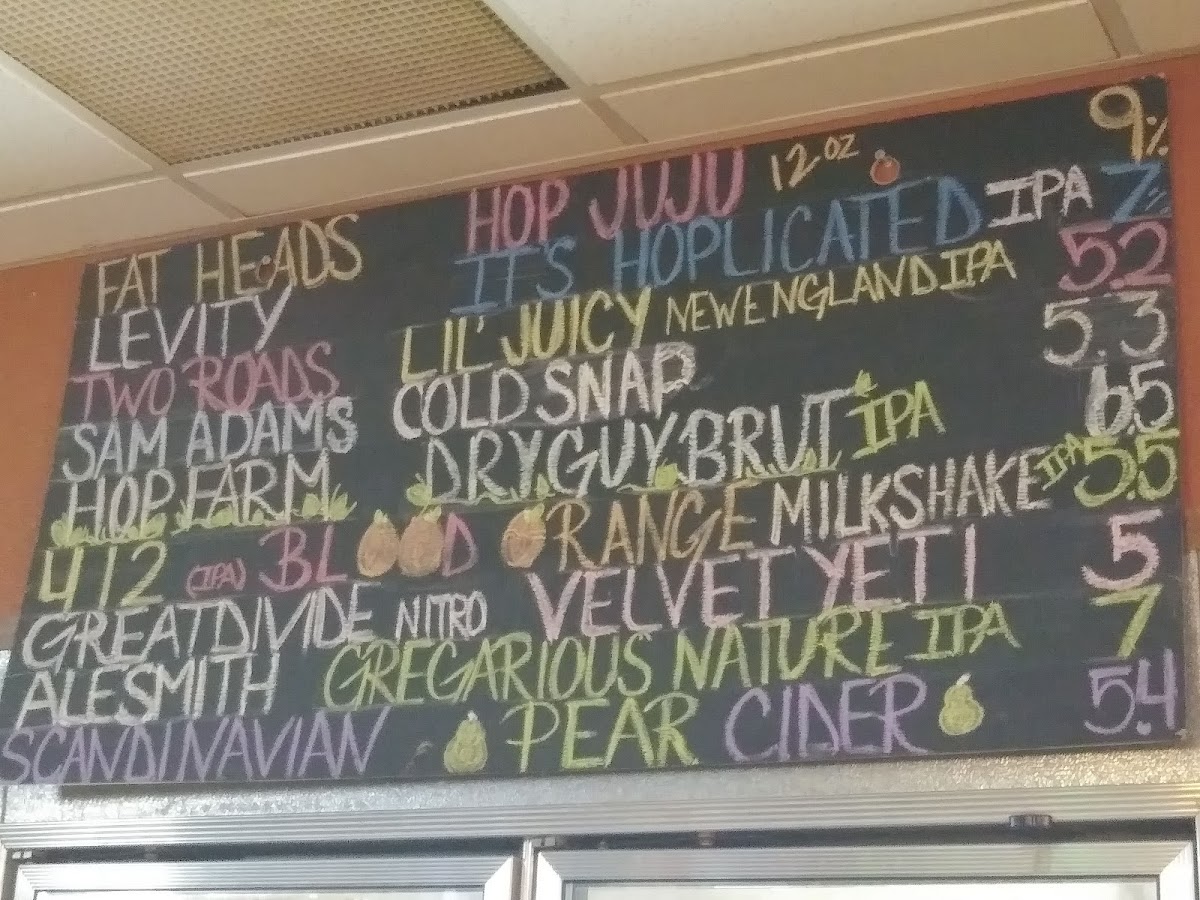 FAT HEADS HOP JUJU 12 OZ 9%
LEVITY IT'S HOPLICATED IPA 7%
TWO ROADS LIL' JUICY NEW ENGLAND IPA 5.2
SAM ADAMS COLD SNAP 5.3
HOP FARM DRY GUY BRUT IPA 6.5
412 (IPA) BLOOD ORANGE MILKSHAKE IPA 5.5
GREAT DIVIDE NITRO VELVET YETI 5
ALESMITH GREGARIOUS NATURE IPA 7
SCANDINAVIAN PEAR CIDER 5.4